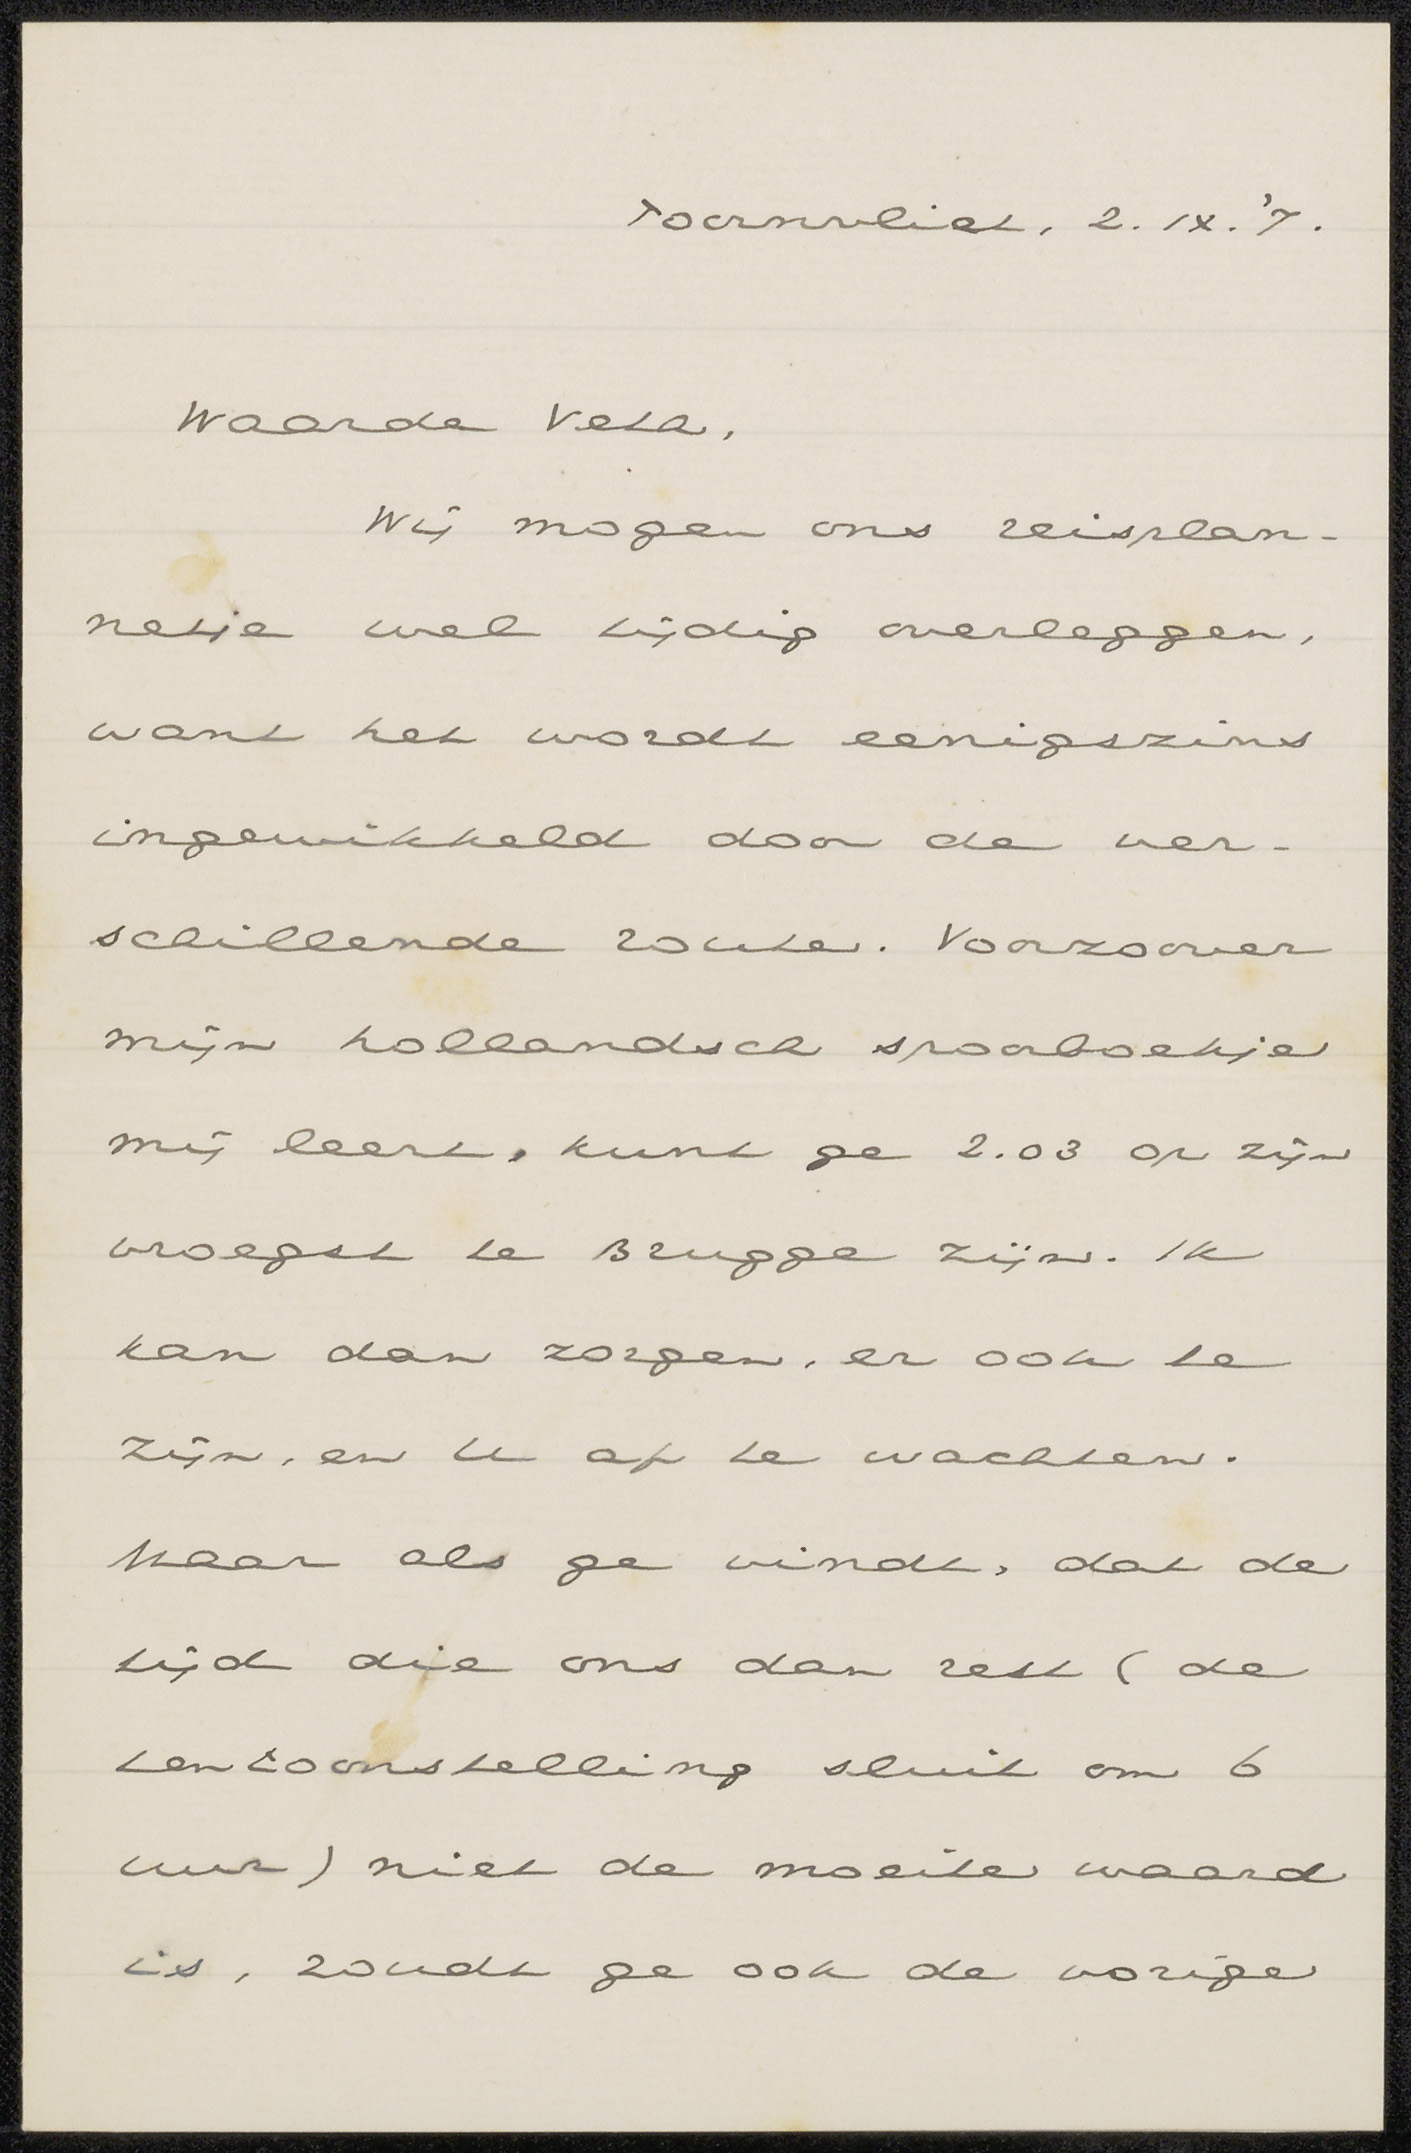 Toornvliet, 2.IX.'7.
Waarde Veth,
Wij mogen ons reisplan-
netje wel tijdig overleggen,
want het wordt eenigszins
ingewikkeld door de ver-
schillende route. Voorzoover
mijn hollandsch spoorboekje
mij leert, kunt ge 2.03 op zijn
vroegst te Brugge zijn. Ik
kan dan zorgen, er ook te
zijn, en U af te wachten.
Maar als ge vindt, dat de
tijd die ons dan rest (de
tentoonstelling sluit om 6
uur) niet de moeite waard
is, zoudt ge ook de vorige